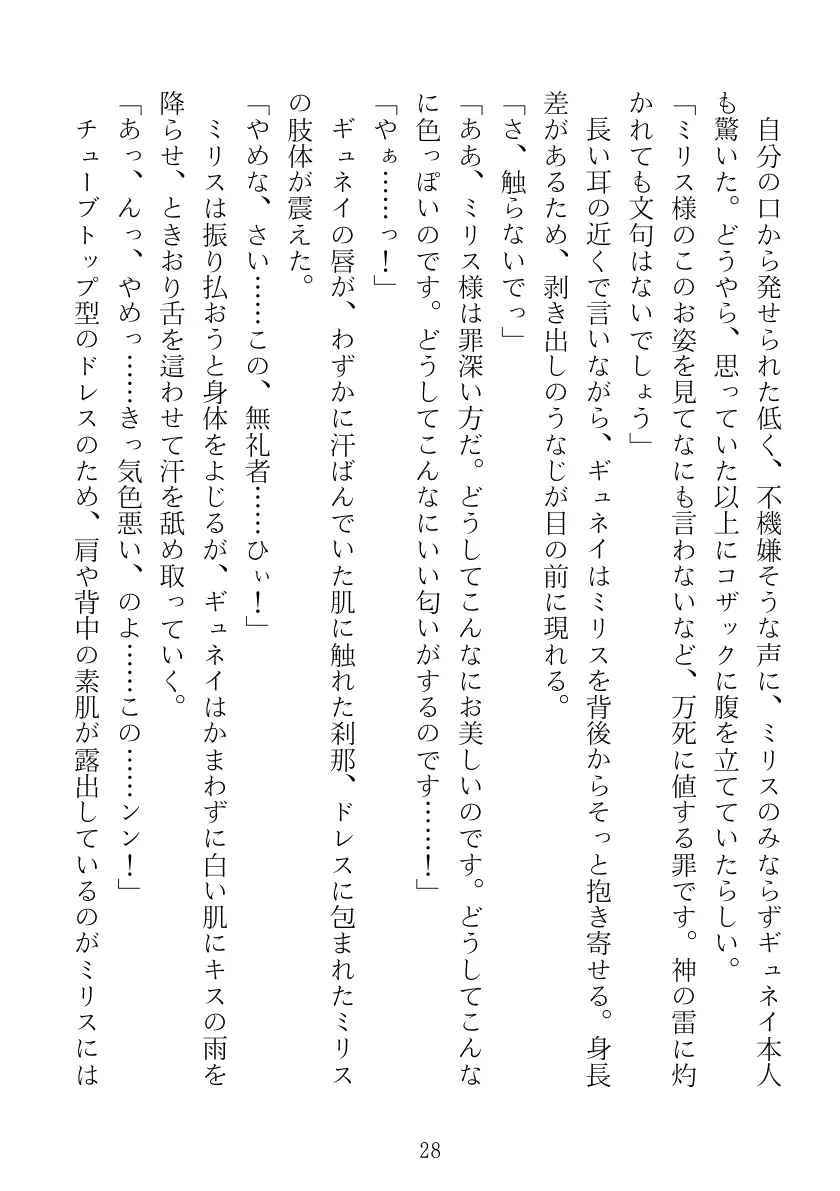 自分の口から発せられた低く、不機嫌そうな声に、ミリスのみならずギュネイ本人
も驚いた。どうやら、思っていた以上にコザックに腹を立てていたらしい。
「ミリス様のこのお姿を見てなにも言わないなど、万死に値する罪です。神の雷に灼
かれても文句はないでしょう」
長い耳の近くで言いながら、ギュネイはミリスを背後からそっと抱き寄せる。身長
差があるため、剥き出しのうなじが目の前に現れる。
「さ、触らないでっ」
「ああ、ミリス様は罪深い方だ。どうしてこんなにお美しいのです。どうしてこんな
に色っぽいのです。どうしてこんなにいい匂いがするのです……！」
「やぁ……っ！」
ギュネイの唇が、わずかに汗ばんでいた肌に触れた刹那、ドレスに包まれたミリス
の肢体が震えた。
「やめな、さい……この、無礼者……ひぃ！」
ミリスは振り払おうと身体をよじるが、ギュネイはかまわずに白い肌にキスの雨を
降らせ、ときおり舌を這わせて汗を舐め取っていく。
「あっ、んっ、やめっ……きっ気色悪い、のよ……この……ンン！」
チューブトップ型のドレスのため、肩や背中の素肌が露出しているのがミリスには
28